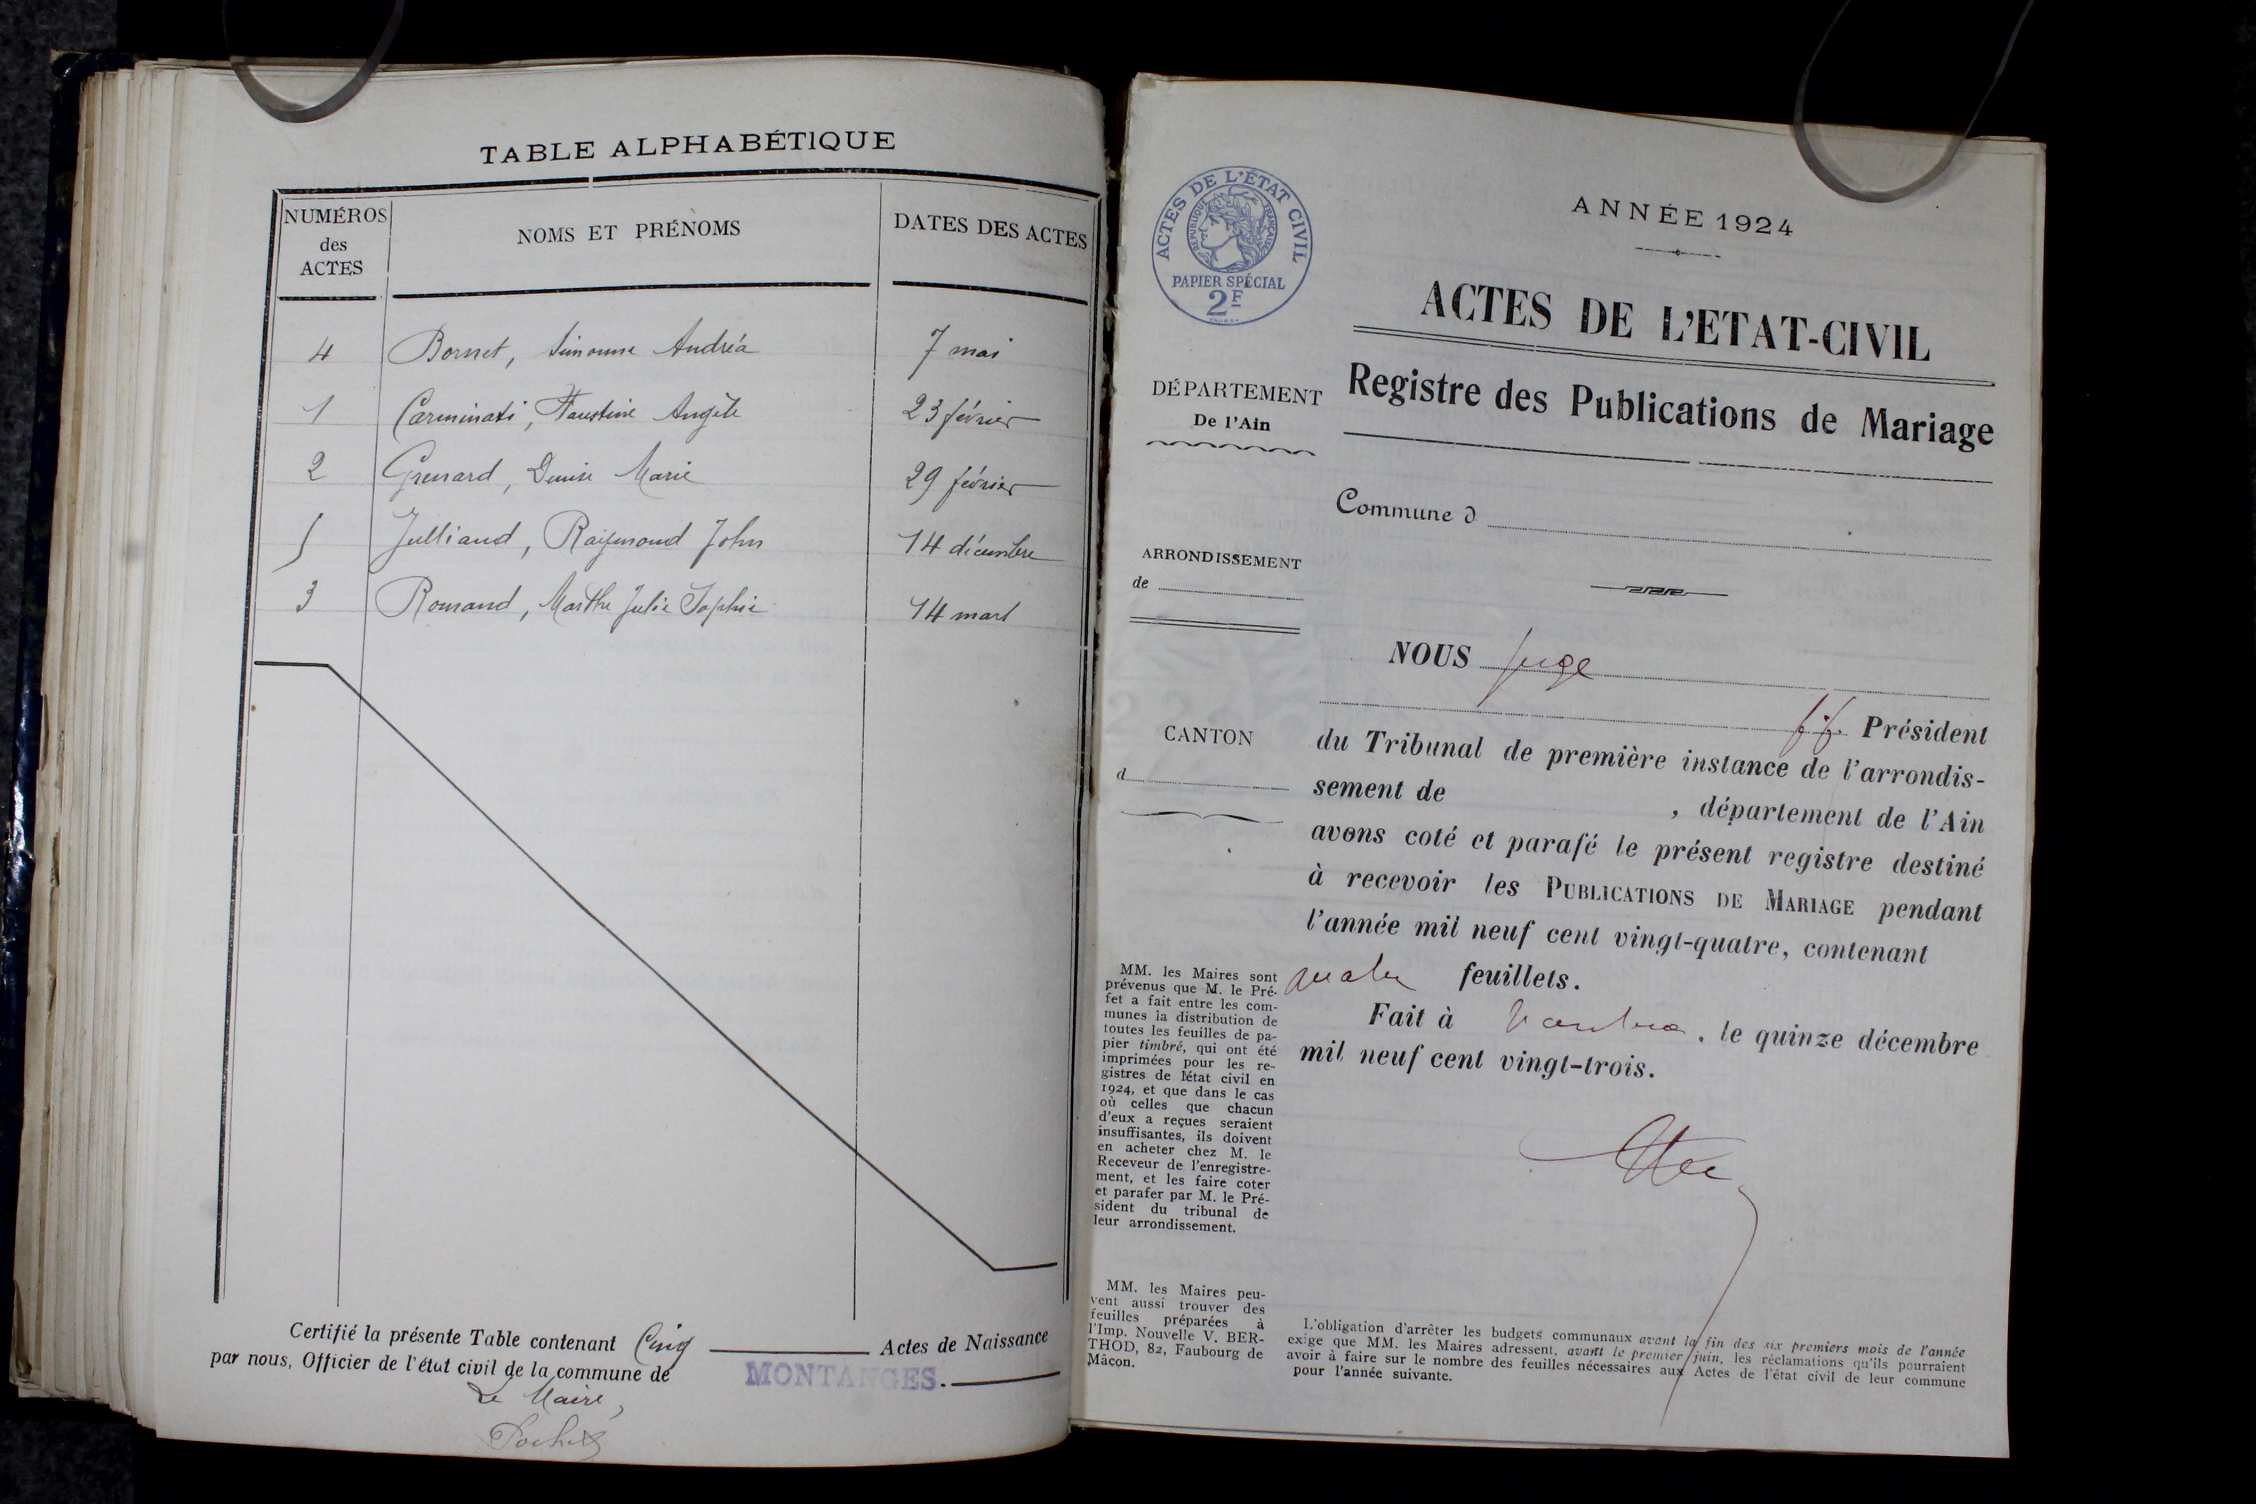 TABLE ALPHABÉTIQUE
NUMÉROS
des
ACTES
NOMS ET PRÉNOMS
DATES DES ACTES
4 Bornet, Simonne Andréa 7 mai
1 Carminati, Faustine Angèle 23 février
2 Grenard, Denise Marie 29 février
5 Julliand, Raymond John 14 décembre
3 Romand, Marthe Julie Sophie 14 mars
Certifié la présente Table contenant Cinq Actes de Naissance
par nous, Officier de l'état civil de la commune de MONTANGES.
Le Maire,
ACTES DE L'ÉTAT CIVIL
RÉPUBLIQUE FRANÇAISE
PAPIER SPÉCIAL
2F
ANNÉE 1924
ACTES DE L'ETAT-CIVIL
Registre des Publications de Mariage
DÉPARTEMENT
De l'Ain
Commune d
ARRONDISSEMENT
de
CANTON
d
NOUS Juge
f.f. Président
du Tribunal de première instance de l'arrondis-
sement de , département de l'Ain
avons coté et parafé le présent registre destiné
à recevoir les PUBLICATIONS DE MARIAGE pendant
l'année mil neuf cent vingt-quatre, contenant
quatre feuillets.
Fait à Nantua, le quinze décembre
mil neuf cent vingt-trois.
MM. les Maires sont
prévenus que M. le Pré-
fet a fait entre les com-
munes la distribution de
toutes les feuilles de pa-
pier timbré, qui ont été
imprimées pour les re-
gistres de l'état civil en
1924, et que dans le cas
où celles que chacun
d'eux a reçues seraient
insuffisantes, ils doivent
en acheter chez M. le
Receveur de l'enregistre-
ment, et les faire coter
et parafer par M. le Pré-
sident du tribunal de
leur arrondissement.
MM. les Maires peu-
vent aussi trouver des
feuilles préparées à
l'Imp. Nouvelle V. BER-
THOD, 82, Faubourg de
Mâcon.
L'obligation d'arrêter les budgets communaux avant la fin des six premiers mois de l'année
exige que MM. les Maires adressent, avant le premier juin, les réclamations qu'ils pourraient
avoir à faire sur le nombre des feuilles nécessaires aux Actes de l'état civil de leur commune
pour l'année suivante.